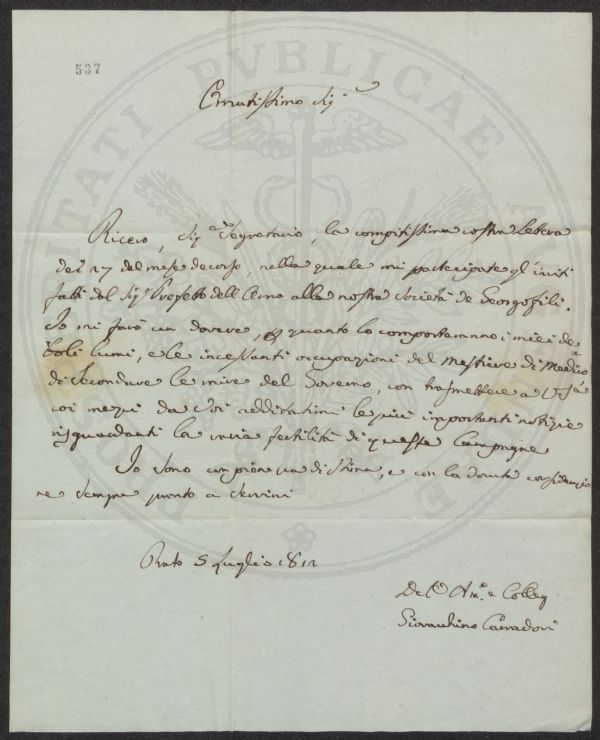 537
PROSPERITATI PVBLICAE
Ornatissimo Sig.re
Ricevo, Sig.e Segretario, la compitissima vostra Lettera
del 27 del mese decorso, nella quale mi partecipate gl'inviti
fatti dal Sig.r Prefetto dell'Arno alla nostra Società de Georgofili.
Io mi farò un dovere, p quanto lo comporteranno i miei de
boli lumi, e le incessanti occupazioni del mestiere di Medico
di secondare le mire del Governo, con trasmettere a V.S.a
coi mezzi da Voi additatimi le più importanti notizie
risguardanti la varia fertilità di queste Campagne
Io sono con piena stima, e con la dovuta considerazio
ne sempre pronto a servirvi
Prato 5 Luglio 1812
Am.o e Colleg
Giovacchino Carradori